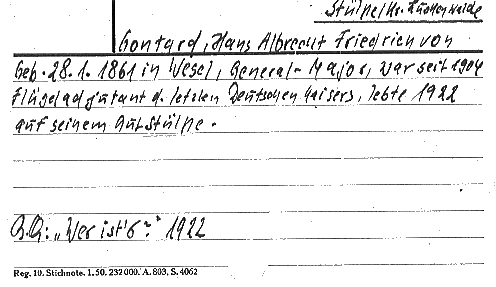 Stülpe/Kr. Luckenwalde
Gontard, Hans Albrecht Friedrich von
Geb. 28.1.1861 in Wesel, General-Major, war seit 1904
Flügeladjutant d. letzten Deutschen Kaisers, lebte 1922
auf seinem Gut Stülpe.
B.Q: „Wer ist's?" 1922
Reg. 10. Stichnote. 1. 50. 232000. A. 803, S. 4062